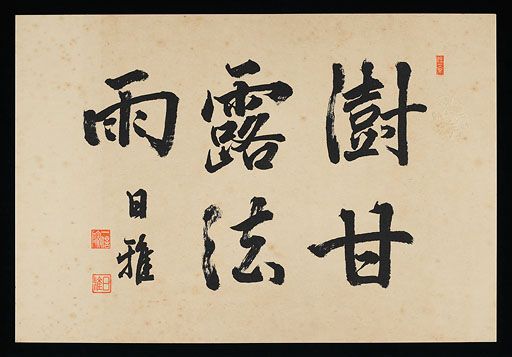 澍甘
露法
雨
日雅